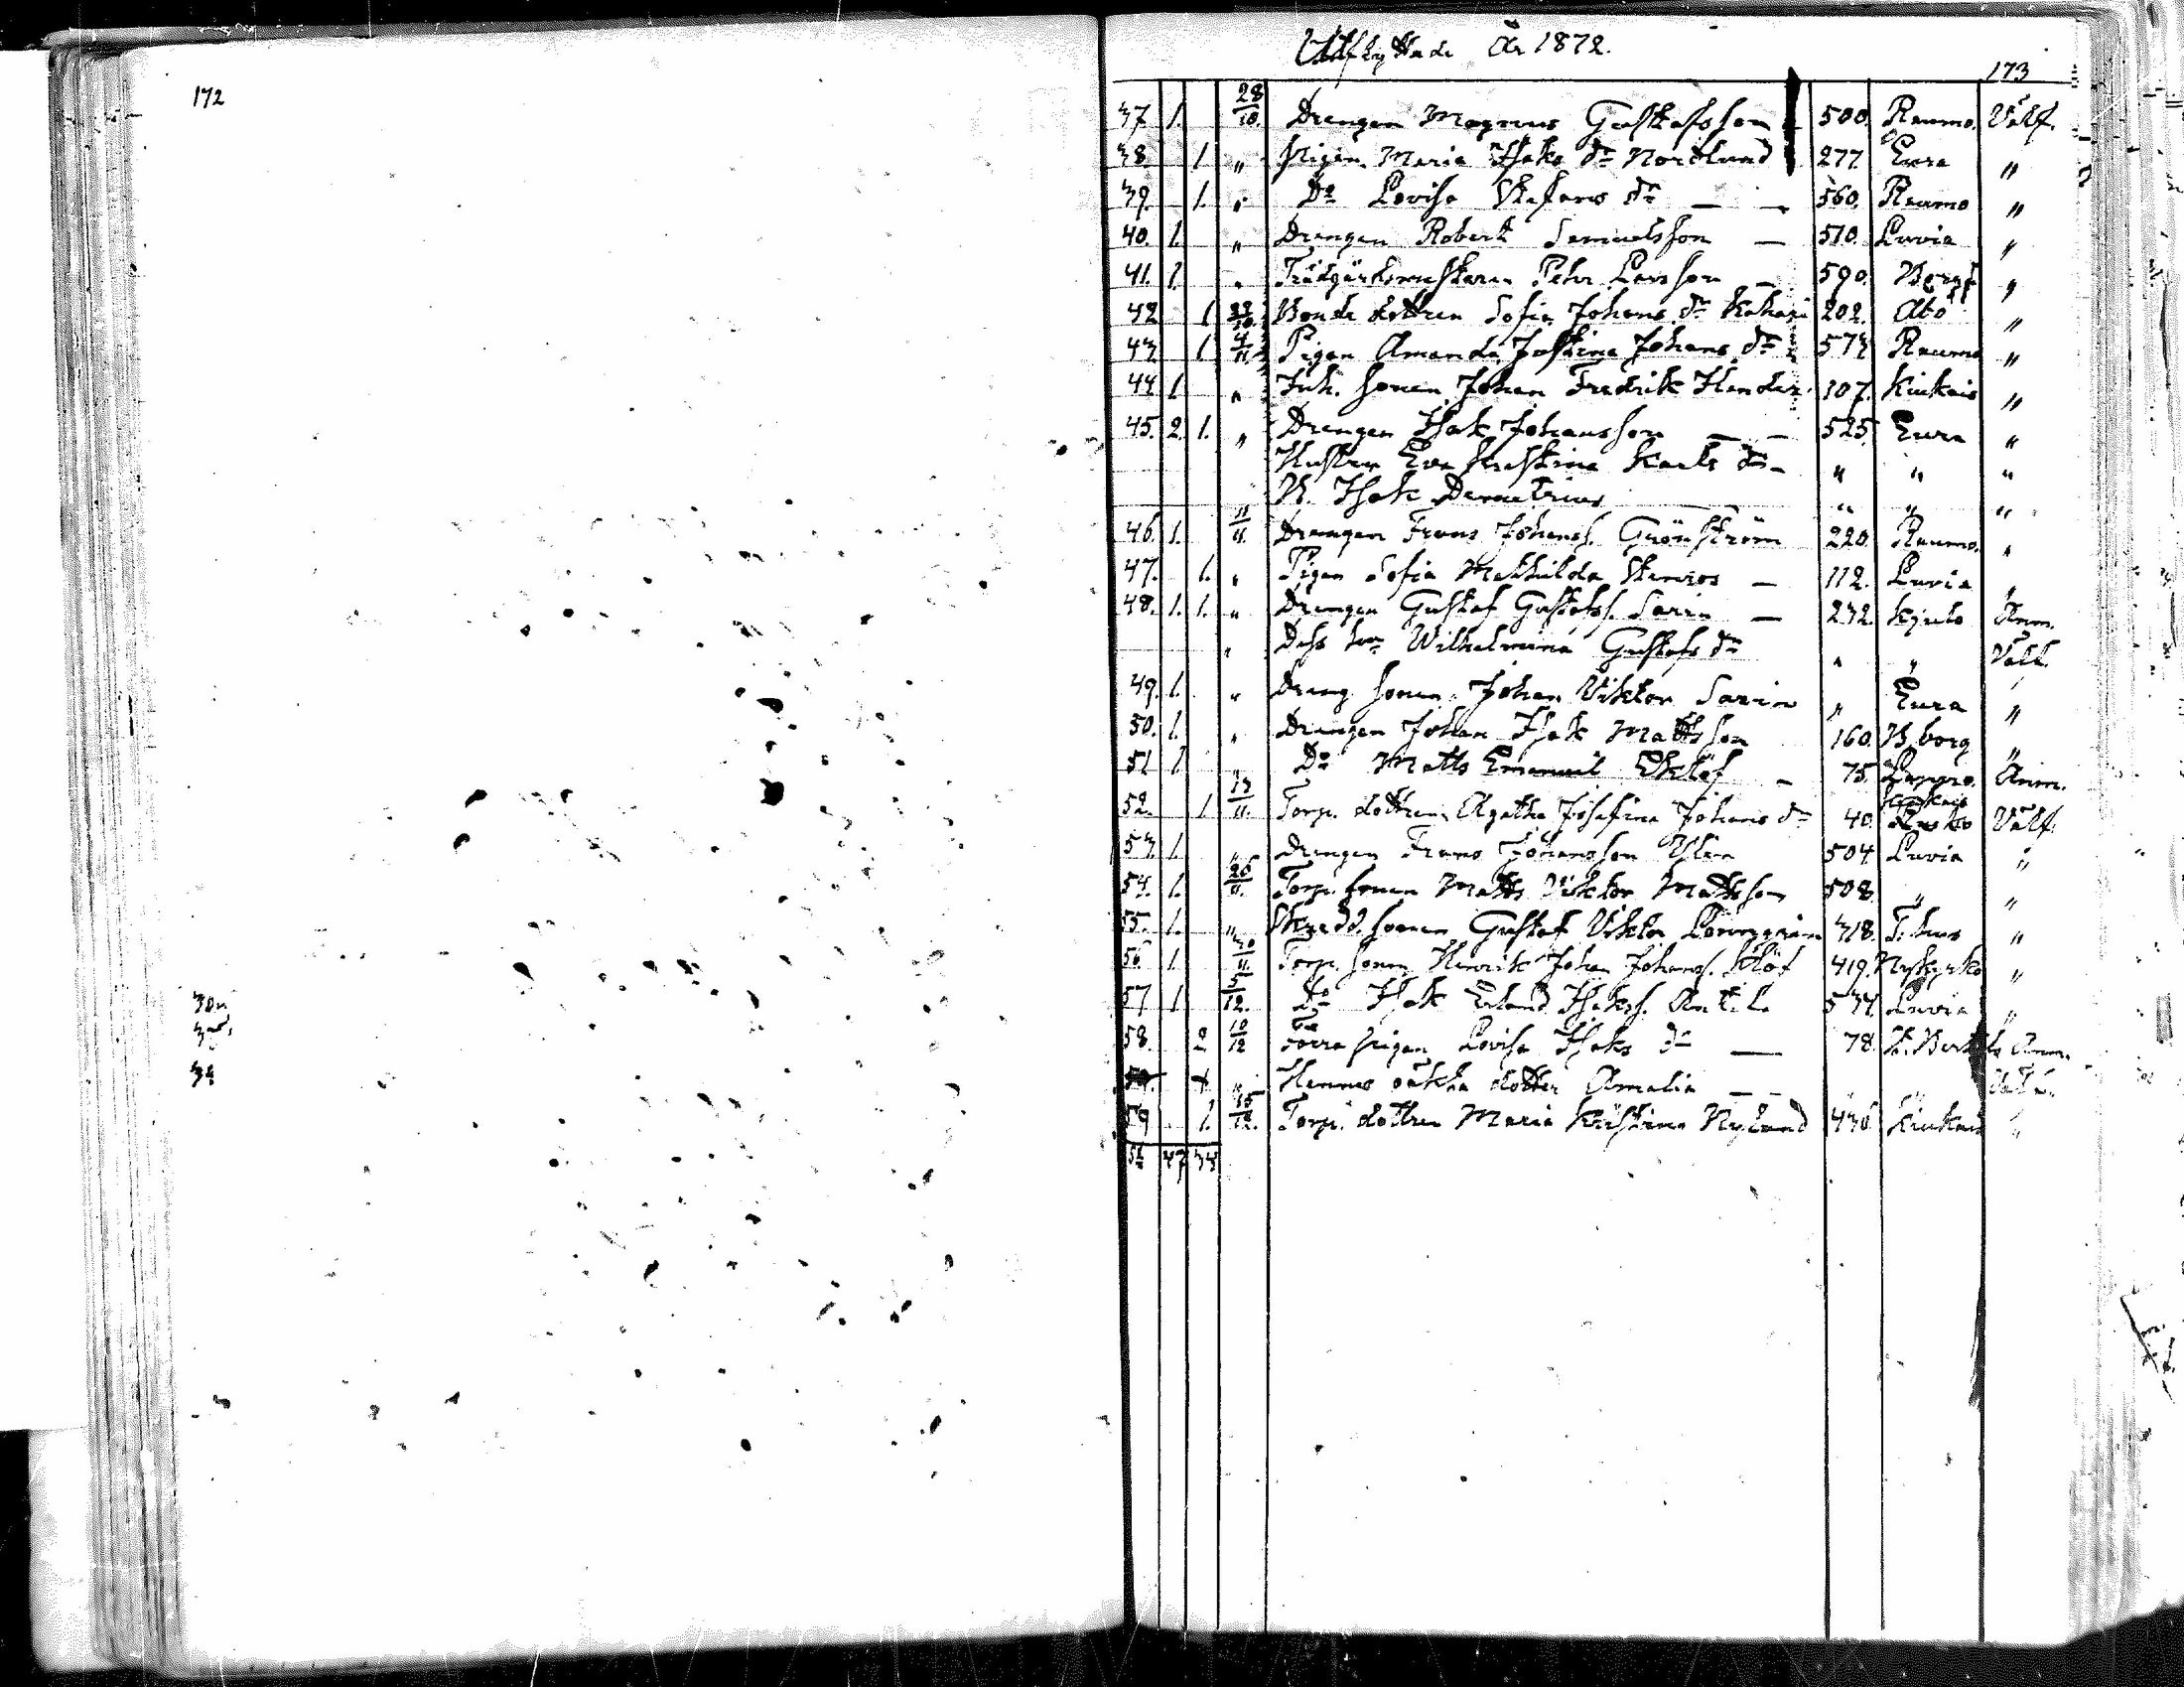 172
Utflyttade År 1872.
173
37. 1. 28/10. Drengen Magnus Gustafsson 500. Raumo. Välf.
38. 1. „ Pigan Maria Isaks dr Nordlund 277. Eura „
39. 1. „ Do Lovisa Stefans dr — — 560. Raumo „
40. 1. „ Drengen Robert Samuelsson — 510. Luvia „
41. 1. „ Trädgårdsmästaren Petr Larsson — 590. „
42 1 Bonde dottren Sofia Johans dr 202. Åbo „
43. 1 4/11 Pigan Amanda Justina Johans dr 573 Raumo „
44 1 „ Inh. sonen Johan Fredrik 107. Kiukais „
45. 2. 1. „ Drengen Isak Johansson — — 525 Eura „
Hustru Eva Kristina Karls dr — „ „ „
B. Isak Demetrius „ „ „
46. 1. 11/11. Drengen Frans Johanss. Grönström 220. Raumo. „
47. 1. „ Pigan Sofia Mathilda Stenros — 112. Luvia „
48. 1. 1. „ Drengen Gustaf Gustafss. Sarin — 232. Kjulo Anm.
„ Dess hu Wilhelmina Gustafs dr „ „ Välf.
49. 1. „ Dreng sonen Johan Viktor Sarin „ Eura „
50. 1. „ Drengen Johan Isak Mattsson 160. B.borg „
51 1 „ Do Matts Emanuel Ekløf — 75. Lappo. Anm.
52. 1 13/11. Torp. dottren Agatha Josefina Johans dr 40. Kiukais Välf.
53. 1. „ Drengen Frans Johansson 504 Luvia „
54. 1. 20/11. Torp. sonen Matts Viktor Mattsson 508. „ „
55. 1. „ Skredd. sonen Gustaf Viktor 318. „
56. 1. 30/11. Torp. sonen Henrik Johan Johanss. 419. Nykyrko „
57 1 5/12. Do Isak Erland Isakss. Antila 534. Luvia „
58. 2 10/12 Förra pigan Lovisa Isaks dr — 78. Anm.
„ Hennes oäkta dotter Amalia — — „ „
59 1. 15/12. Torp. dottren Maria Kristina Nylund 436 Kiukais „
47 34